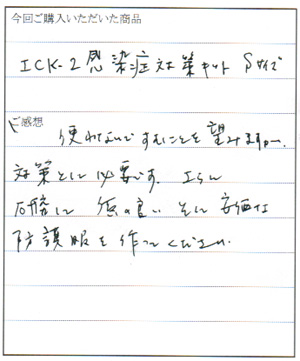 今回ご購入いただいた商品
ICK-2 感染症対策キット Sサイズ
ご感想
使わないですむことを望みますが、
対策として必要です。さらに
研究して 質の良い そして 安価な
防護服を作ってください。